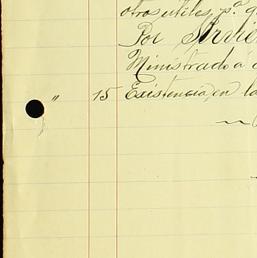 otros utiles, pª g
Por Arrie
Ministrado a
" 15 Existencia, en la